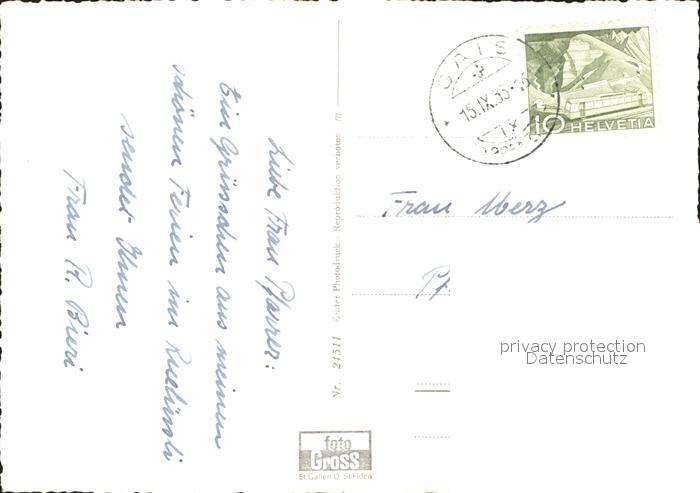 Liebe Frau Pfarrer:
Ein Grüsschen aus meinen
schönen Ferien im Rudüsli
sendet Ihnen
Frau R. Bieri
Nr. 24511 Photodruck - Reproduktion verboten
foto
Gross
St.Gallen O St.Fiden
GAIS
15.IX.55
10 HELVETIA
Frau Merz
Pf
privacy protection
Datenschutz